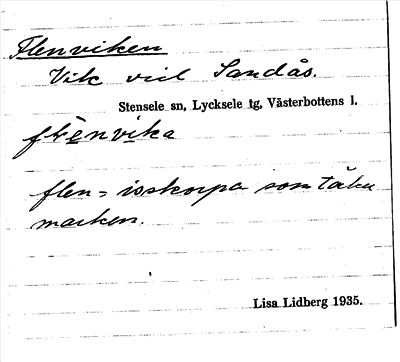 Flenviken
Vik vid Sandås.
Stensele sn, Lycksele tg, Västerbottens l.
flenvika
flen = isskorpa som täker
marken.
Lisa Lidberg 1935.